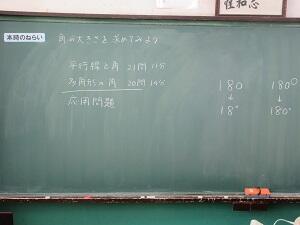 本時のねらい
角の大きさを求めてみよう
平行線と角 21問 11分
多角形の角 20問 14分
応用問題
180 180°
↓ ↓
18° 180°